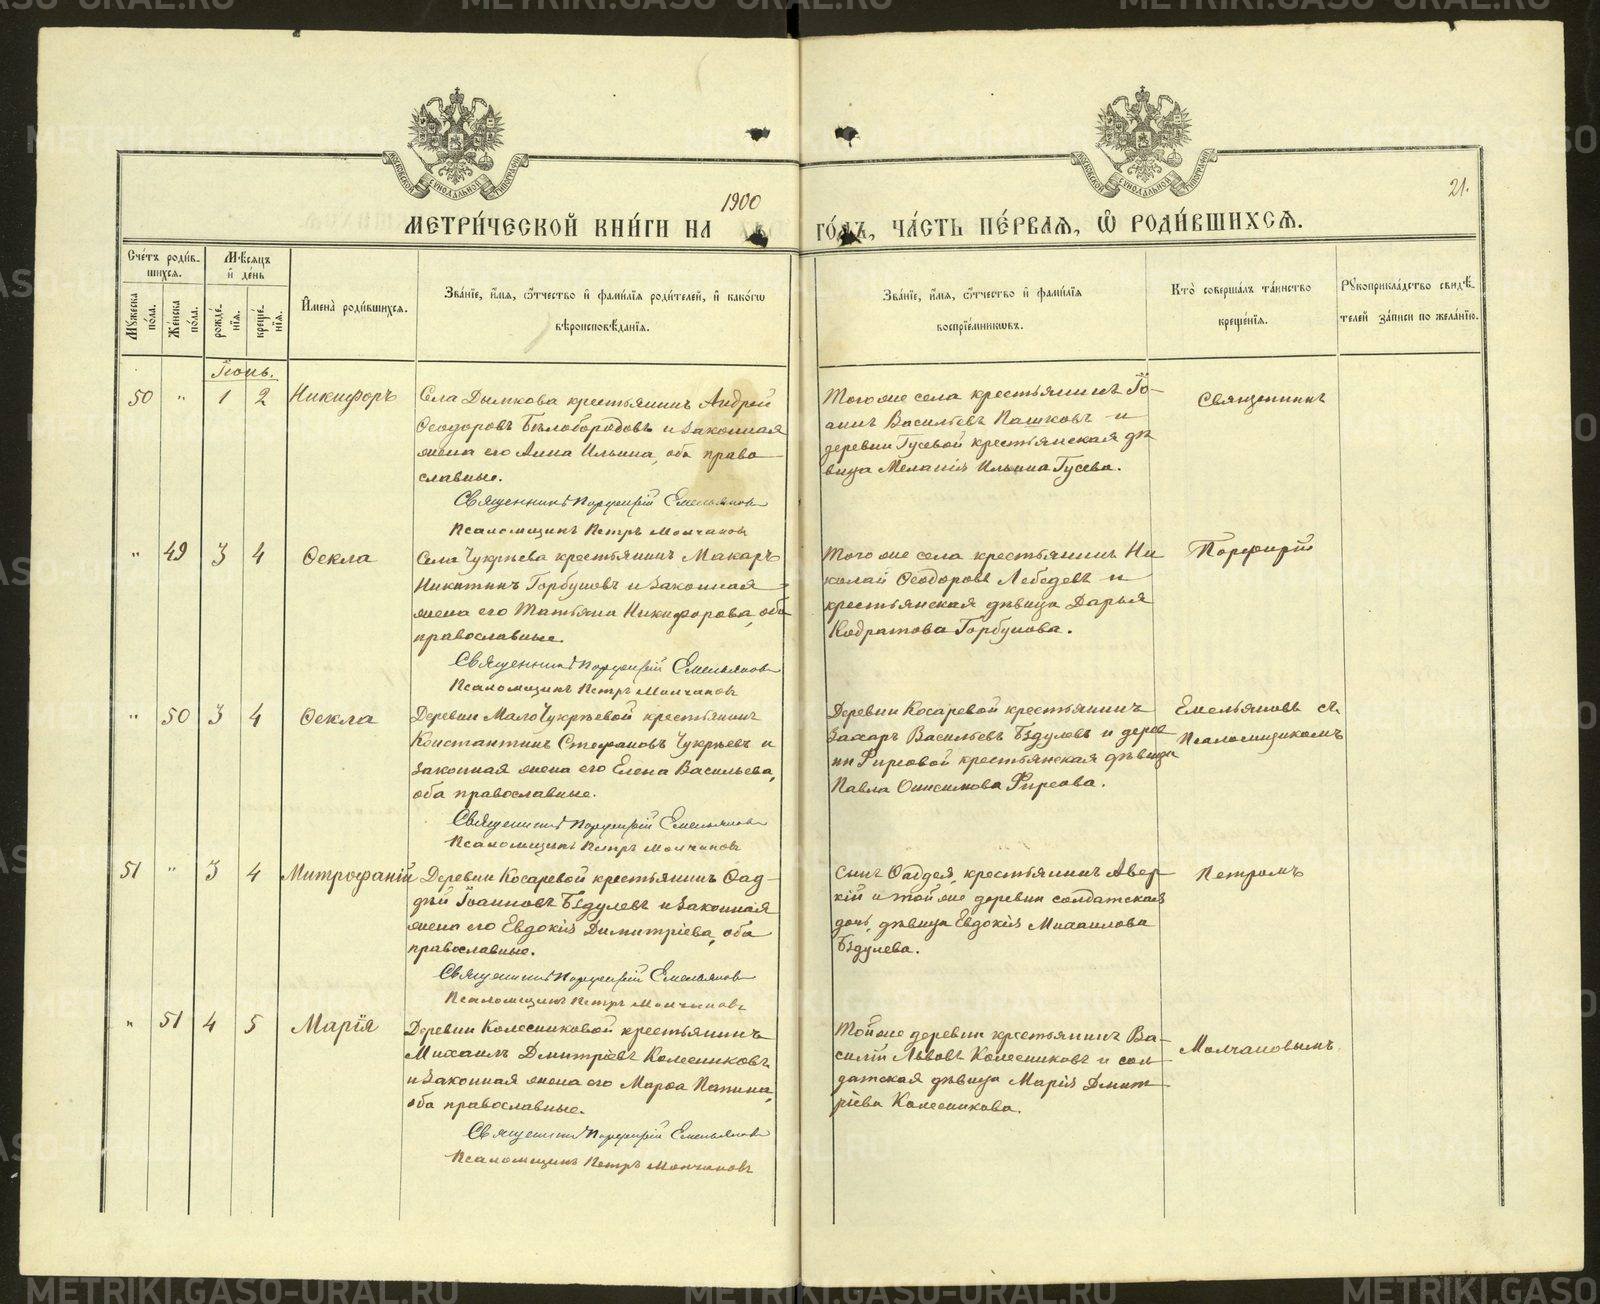 1900
21.
МЕТРИ́ЧЕСКОЙ КНИ́ГИ НА
ГО́ДЪ, ЧА́СТЬ ПЕ́РВАЯ, Ѡ҆ РОДИ́ВШИХСѦ.
Сче́тъ роди́в-
шихсѧ.
Мѣ́сѧцъ
и҆ де́нь
Мꙋ́жеска
по́ла.
Же́нска
по́ла.
рожде́-
нїѧ.
креще́-
нїѧ.
И҆мена̀ роди́вшихсѧ.
Зва́нїе, и҆́мѧ, ѻ҆́тчество и҆ фами́лїѧ роди́телей, и҆ како́гѡ
вѣроисповѣ́данїѧ.
Зва́нїе, и҆́мѧ, ѻ҆́тчество и҆ фами́лїѧ
воспрїе́мникѡвъ.
Кто̀ соверша́лъ та́инство
креще́нїѧ.
Рꙋкоприкла́дство свидѣ́-
телей за́писи по жела́нїю.
Іюнь.
50 " 1 2 Никифоръ
Села Дымкова крестьянинъ Андрей
Ѳеодоровъ Бѣлобородовъ и законная
жена его Анна Ильина, оба право-
славные.
Священникъ Порфирій Емельяновъ
Псаломщикъ Петръ Молчановъ
Того же села крестьянинъ Іо-
аннъ Васильевъ Пашковъ и
деревни Гусевой крестьянская дѣ-
вица Меланія Ильина Гусева.
Священникъ
" 49 3 4 Ѳекла
Села Чукрѣева крестьянинъ Макаръ
Никитинъ Горбуновъ и законная
жена его Татьяна Никифорова, оба
православные.
Священникъ Порфирій Емельяновъ
Псаломщикъ Петръ Молчановъ
Того же села крестьянинъ Ни
колай Ѳеодоровъ Лебедевъ и
крестьянская дѣвица Дарья
Кодратова Горбунова.
Порфирій
" 50 3 4 Ѳекла
Деревни МалоЧукрѣевой крестьянинъ
Константинъ Стефановъ Чукрѣевъ и
законная жена его Елена Васильева,
оба православные.
Священникъ Порфирій Емельяновъ
Псаломщикъ Петръ Молчановъ
Деревни Косаревой крестьянинъ
Захаръ Васильевъ Бздулевъ и дерев-
ни Фирсовой крестьянская дѣвица
Павла Онисимова Фирсова.
Емельяновъ съ
Псаломщикомъ
51 " 3 4 Митрофаній
Деревни Косаревой крестьянинъ Ѳад-
дѣй Іоанновъ Бздулевъ и законная
жена его Евдокія Димитріева, оба
православные.
Священникъ Порфирій Емельяновъ
Псаломщикъ Петръ Молчановъ
Сынъ Ѳаддея, крестьянинъ Авер-
кій и той же деревни солдатская
дочь, дѣвица Евдокія Михаилова
Бздулева.
Петромъ
" 51 4 5 Марія
Деревни Колесниковой крестьянинъ
Михаилъ Дмитріевъ Колесниковъ
и законная жена его Марѳа Папина,
оба православные.
Священникъ Порфирій Емельяновъ
Псаломщикъ Петръ Молчановъ
Той же деревни крестьянинъ Ва-
силій Львовъ Колесниковъ и сол-
датская дѣвица Марія Дмит-
ріева Колесникова.
Молчановымъ.